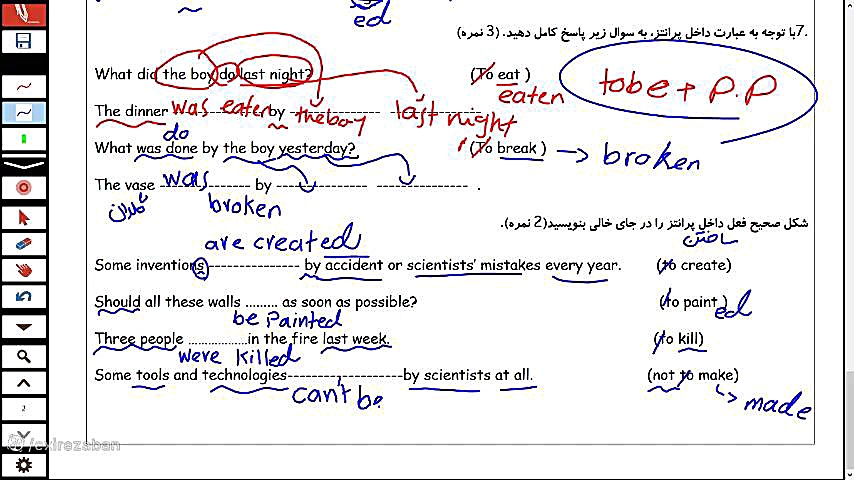 ed
.7با توجه به عبارت داخل پرانتز، به سوال زیر پاسخ کامل دهید. (3 نمره)
What did the boy do last night? (To eat ) eaten
to be + P.P
The dinner was eaten by the boy last night
do
What was done by the boy yesterday? (To break ) → broken
The vase was broken ---------- by ------------------ ------------------ .
گلدان
شکل صحیح فعل داخل پرانتز را در جای خالی بنویسید(2 نمره).
are created ساختن
Some inventions ------------------ by accident or scientists' mistakes every year. (to create)
Should all these walls ......... as soon as possible? (to paint ) ed
be Painted
Three people ..................in the fire last week. (to kill)
were killed
Some tools and technologies--------------------by scientists at all. (not to make)
can't be made
2
/exirezaban